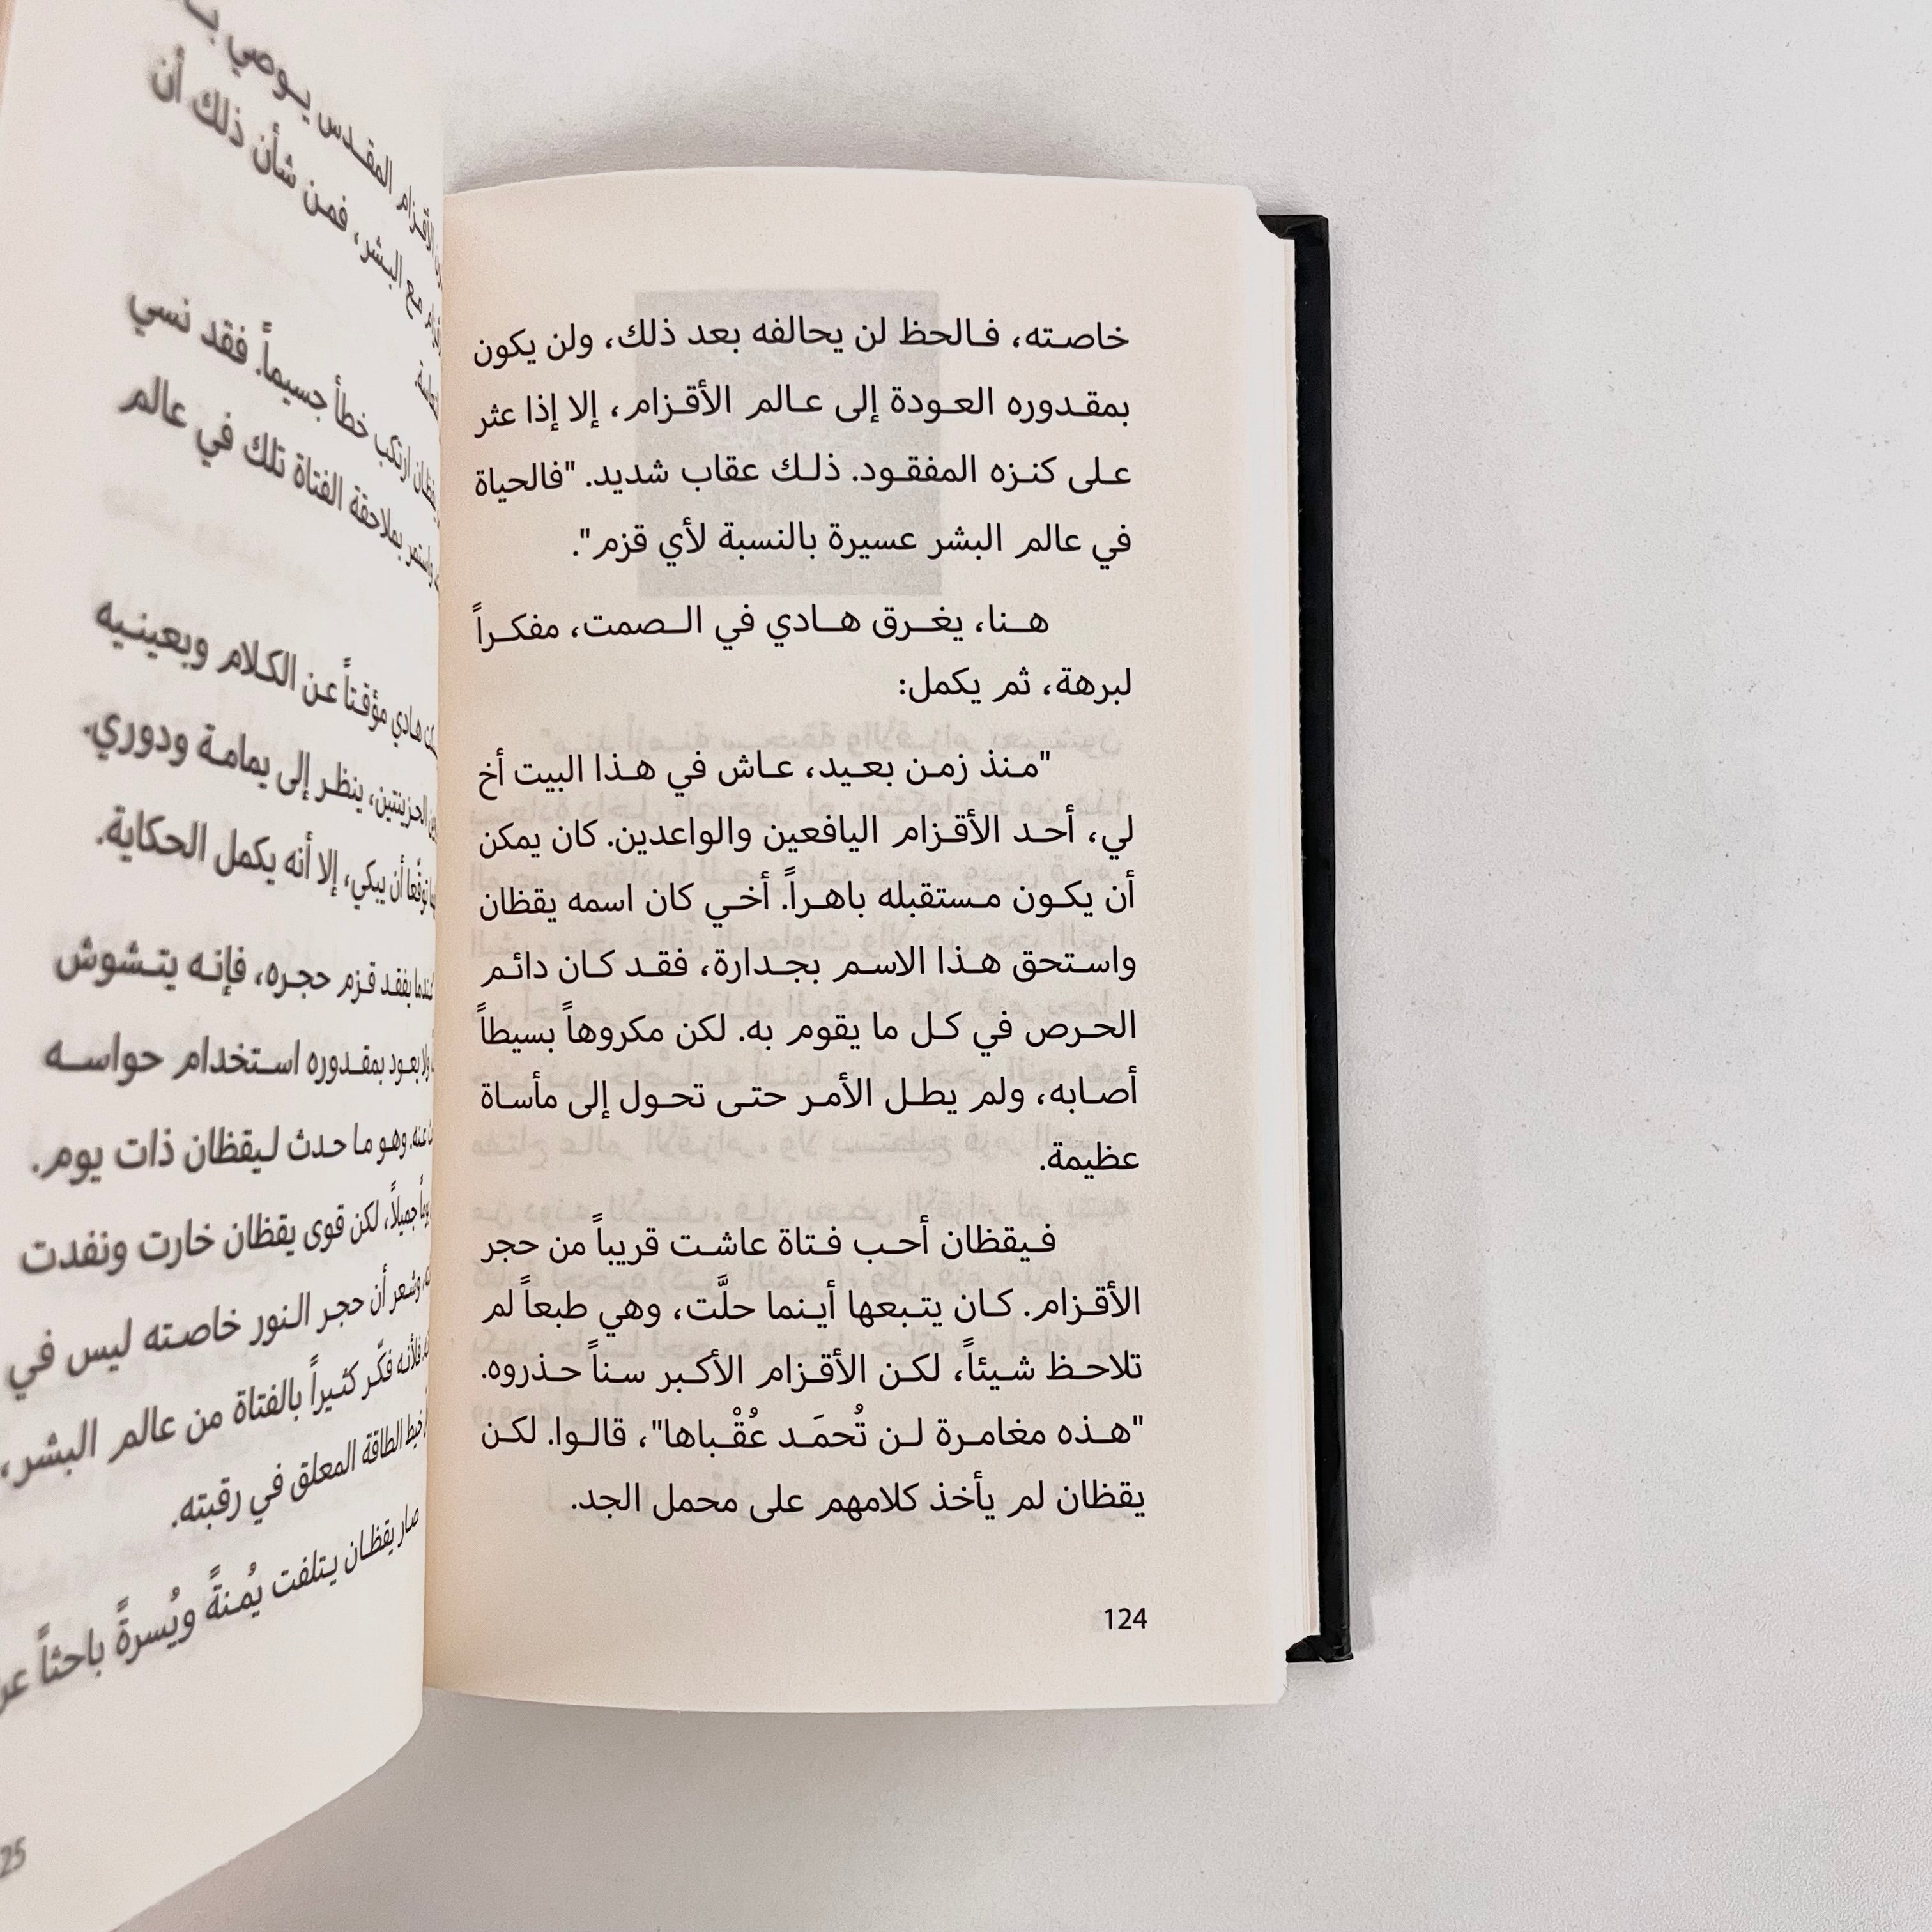 خاصته، فالحظ لن يحالفه بعد ذلك، ولن يكون
بمقدوره العودة إلى عالم الأقزام، إلا إذا عثر
على كنزه المفقود. ذلك عقاب شديد. "فالحياة
في عالم البشر عسيرة بالنسبة لأي قزم".
هنا، يغرق هادي في الصمت، مفكراً
لبرهة، ثم يكمل:
"منذ زمن بعيد، عاش في هذا البيت أخ
لي، أحد الأقزام اليافعين والواعدين. كان يمكن
أن يكون مستقبله باهراً. أخي كان اسمه يقظان
واستحق هذا الاسم بجدارة، فقد كان دائم
الحرص في كل ما يقوم به. لكن مكروهاً بسيطاً
أصابه، ولم يطل الأمر حتى تحول إلى مأساة
عظيمة.
فيقظان أحب فتاة عاشت قريباً من حجر
الأقزام. كان يتبعها أينما حلَّت، وهي طبعاً لم
تلاحظ شيئاً، لكن الأقزام الأكبر سناً حذروه.
"هذه مغامرة لن تُحمَد عُقْباها"، قالوا. لكن
يقظان لم يأخذ كلامهم على محمل الجد.
124
الأقزام المقدس يوصي
مع البشر، فمن شأن ذلك أن
يقظان ارتكب خطأ جسيماً. فقد نسي
واستمر بملاحقة الفتاة تلك في عالم
هادي مؤقتاً عن الكلام وبعينيه
الحزينتين، ينظر إلى يمامة ودوري.
توقعا أن يبكي، إلا أنه يكمل الحكاية.
يفقد قزم حجره، فإنه يتشوش
ولا يعود بمقدوره استخدام حواسه
وهو ما حدث ليقظان ذات يوم.
جميلاً، لكن قوى يقظان خارت ونفدت
وشعر أن حجر النور خاصته ليس في
فلأنه فكّر كثيراً بالفتاة من عالم البشر،
خيط الطاقة المعلق في رقبته.
صار يقظان يتلفت يُمنةً ويُسرةً باحثاً
25